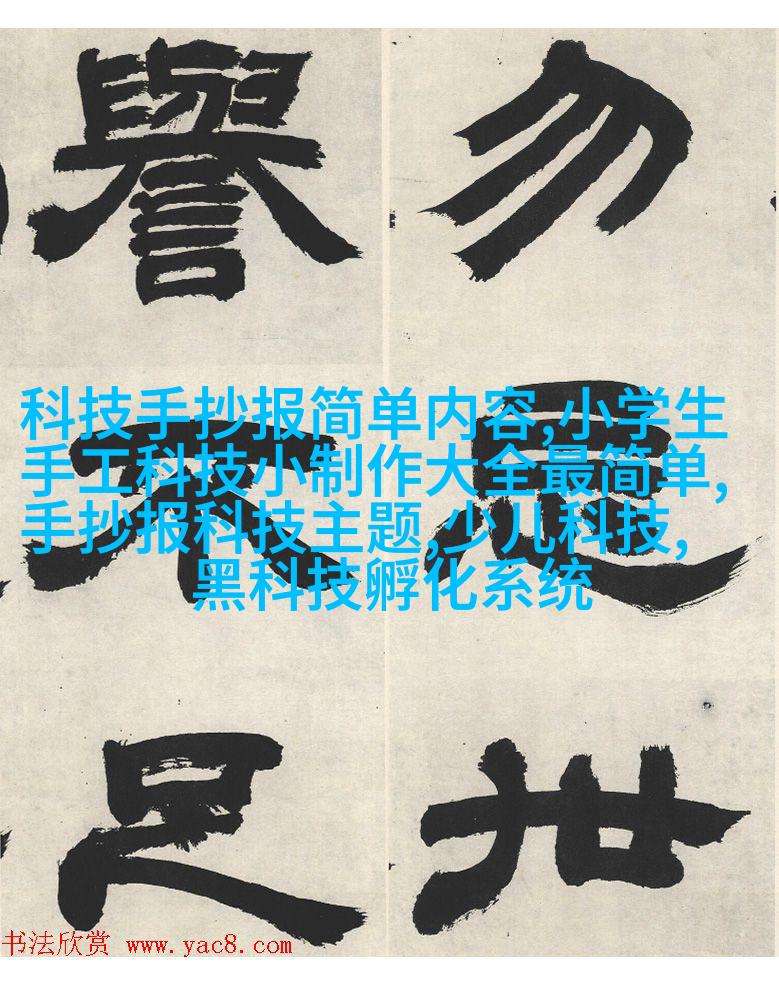 勿
世
譽不足
科技手抄报简单内容,小学生
手工科技小制作大全最简单,
手抄报科技主题,少儿科技,
黑科技孵化系统
书法欣赏 www.yac8.com